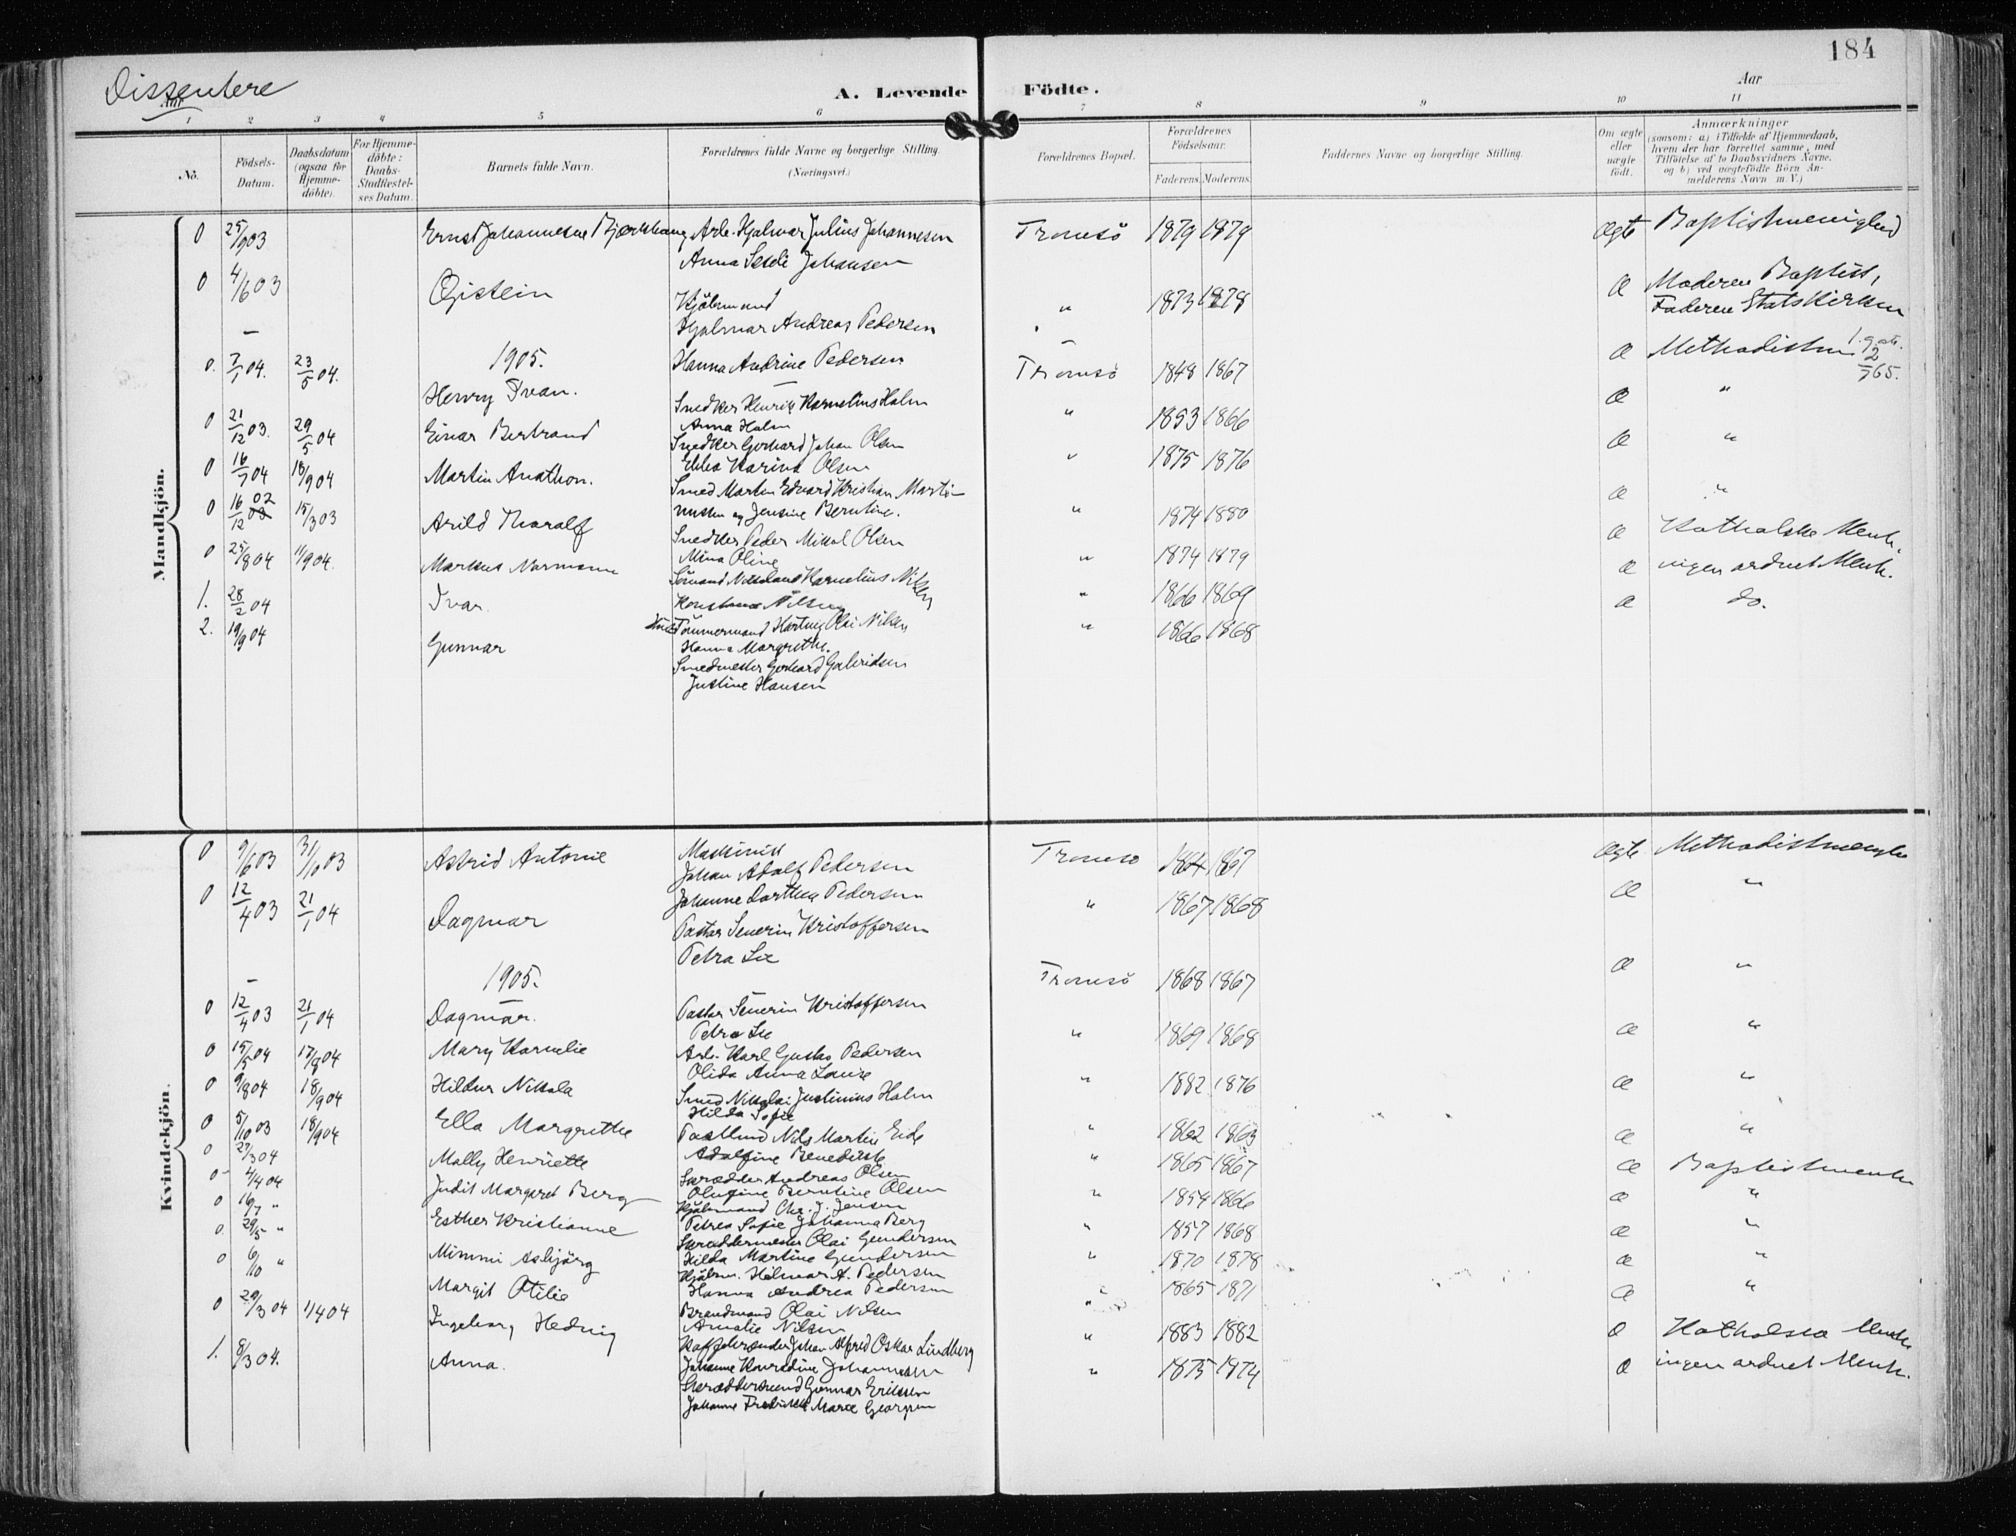 184
Dissentere
Aar
A. Levende Födte.
Aar
1 2 3 4 5 6 7 8 9 10 11
No.
Födsels-Datum.
Daabsdatum (ogsaa for Hjemme-döbte).
For Hjemme-döbte: Daabs-Stadfæstel-ses Datum.
Barnets fulde Navn.
Forældrenes fulde Navne og borgerlige Stilling.
(Næringsvei.)
Forældrenes Bopæl.
Forældrenes Födselsaar.
Faderens. Moderens.
Faddernes Navne og borgerlige Stilling.
Om ægte eller uægte födt.
Anmærkninger
(saasom: a) i Tilfælde af Hjemmedaab, hvem der har forrettet samme, med Tilföielse af to Daabsvidners Navne, og b) ved uægtefödte Börn Anmelderens Navn m. V.)
Mandkjön.
0 25/9 03 Ernst Johannesne Bjærkhaug Arb. Hjalmar Julius Johannesen Tromsö 1879 1879 Ægte Baptistmenighed
Anna Johansen
0 4/6 03 Øistein Kjölsmand " 1873 1878 Æ Moderen Baptist,
Hjalmar Andreas Pedersen Faderen Statskirken
Hanna Andrine Pedersen
– 1905. –
0. 7/1 04. 23/5 04. Henry Ivan. Snedker Henrik Kornelius Holm Tromsö 1848 1867 Æ Methodistm
Anna Holm
0 21/12 03. 29/5 04 Einar Bertrand Snedker Gerhard Johan Olsen " 1853 1866 Æ "
Ebba Karina Olsen
0 16/7 04 18/9 04 Martin Anathon. Smed Martin Edvard Kristian Marti- " 1875 1876 Æ "
nussen og Jensine Berntine.
0 16/12 02 15/3 03 Arild Thoralf Snedker Peder Mikal Olsen " 1874 1880 Æ "
Mina Oline
0 25/8 04 11/9 04. Markus Normann Sömand Kornelius Nilsen " 1874 1879 Æ Katholske Menh.
Nilsen
1. 28/2 04 Ivar. Tömmermand Hartvig Olai Nilsen " 1866 1869 Æ ingen ordnet Menh.
Hanna Margrethe.
2. 19/9 04 Gunnar Smedmester Gerhard Gabrielsen " 1866 1868 Æ do.
Justine Hansen
Kvindekjön.
0 9/6 03 31/10 03 Astrid Antonie Maskinist Tromsö 1864 1867 Ægte Methodistmengh
Johan Adolf Pedersen
Johanne Dorthea Pedersen
0 12/4 03 21/1 04 Dagmar Pastor Severin Kristoffersen " 1867 1868 Æ "
Petra Lie
– 1905.
0 12/4 03 21/1 04 Dagmar. Pastor Severin Kristoffersen Tromsö 1868 1867 Æ "
Petra Lie
0 15/5 04 17/8 04 Mary Kornelie Arb. Karl Gustav Pedersen " 1869 1868 Æ "
Olida Anna Louise
0 9/8 04 18/9 04 Hildur Nikola Smed Nikolai Justinius Holm " 1882 1876 Æ "
Hilda Sofie
0 5/10 03 18/9 04 Ella Margrethe Nils Martin Eide " 1862 1863 Æ "
Adolfine Benedikte
0 27/3 04 Mally Henriette Skrædder Andreas Olsen " 1865 1867 Æ Baptistmenh
Olufine Berntine Olsen
0 4/4 04 Judit Margret Berg Kjölsmand Chr. J. Jensen " 1854 1866 Æ "
Petrea Sofie Johanna Berg
0 16/7 " Esther Kristianne Skræddermester Olai Gundersen " 1857 1868 Æ "
Hilda Martine Gundersen
0. 29/5 " Mimmi Asbjörg Kjölsm. Hilmar A. Pedersen " 1870 1878 Æ "
Hanna Andrea Pedersen
0 6/10 " Margit Otilie Brandmand Olai Nilsen " 1865 1871 Æ "
Amalie Nilsen
0 29/3 04 1/4 04 Ingeborg Hedvig Johan Alfred Oskar Lindberg " 1883 1882 Æ Katholska Menh
Johanne Konradine Johannesen
1. 8/3 04. Anna. Skræddersvend Gunnar Eriksen " 1875 1874 Æ ingen ordnet Menh.
Johanne Fredrikke Marie Georgsen